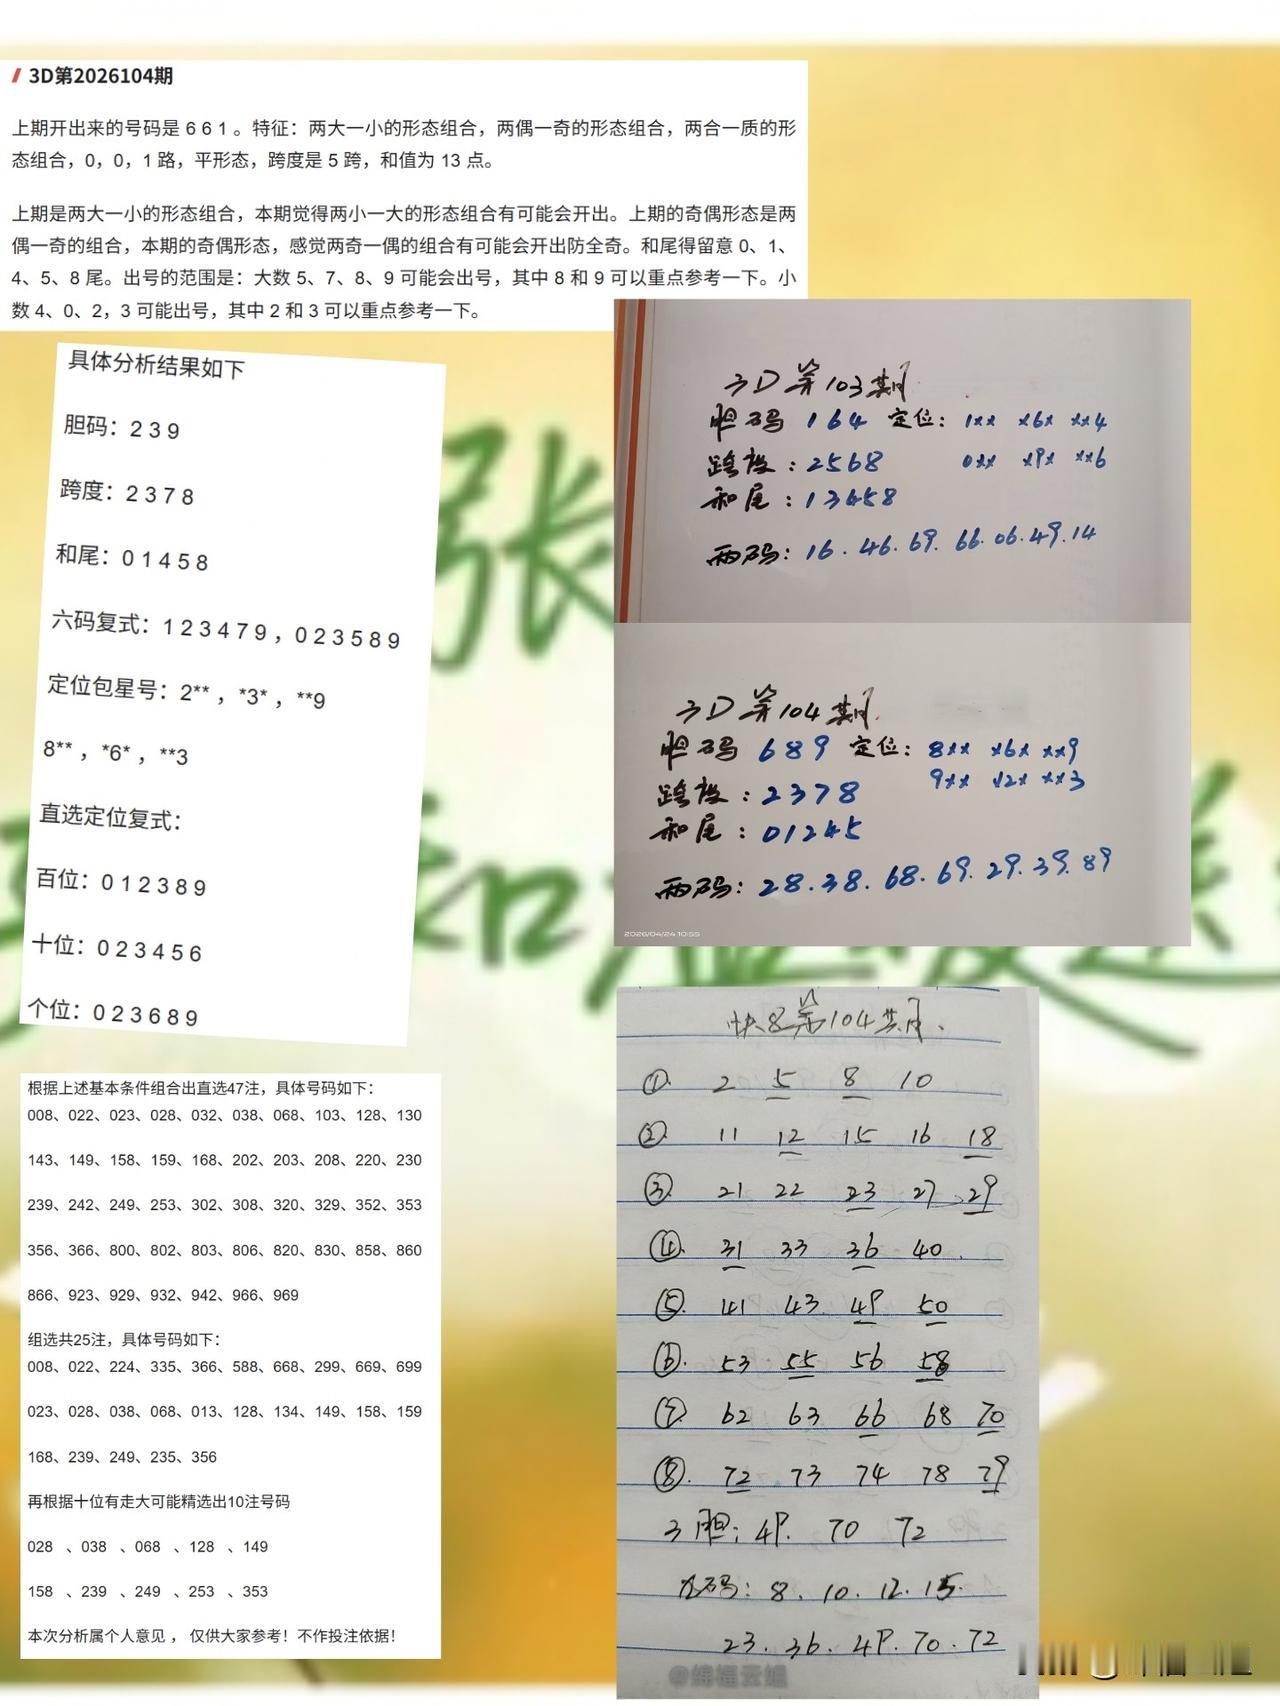 3D第2026104期
上期开出来的号码是 6 6 1 。特征：两大一小的形态组合，两偶一奇的形态组合，两合一质的形
态组合，0，0，1 路，平形态，跨度是 5 跨，和值为 13 点。
上期是两大一小的形态组合，本期觉得两小一大的形态组合有可能会开出。上期的奇偶形态是两
偶一奇的组合，本期的奇偶形态，感觉两奇一偶的组合有可能会开出防全奇。和尾得留意 0、1、
4、5、8 尾。出号的范围是：大数 5、7、8、9 可能会出号，其中 8 和 9 可以重点参考一下。小
数 4、0、2，3 可能出号，其中 2 和 3 可以重点参考一下。
具体分析结果如下
胆码：2 3 9
跨度：2 3 7 8
和尾：0 1 4 5 8
六码复式：1 2 3 4 7 9 ，0 2 3 5 8 9
定位包星号：2** ，*3* ，**9
8** ，*6* ，**3
直选定位复式：
百位：0 1 2 3 8 9
十位：0 2 3 4 5 6
个位：0 2 3 6 8 9
根据上述基本条件组合出直选47注，具体号码如下：
008、022、023、028、032、038、068、103、128、130
143、149、158、159、168、202、203、208、220、230
239、242、249、253、302、308、320、329、352、353
356、366、800、802、803、806、820、830、858、860
866、923、929、932、942、966、969
组选共25注，具体号码如下：
008、022、224、335、366、588、668、299、669、699
023、028、038、068、013、128、134、149、158、159
168、239、249、235、356
再根据十位有走大可能精选出10注号码
028 、038 、068 、128 、149
158 、239 、249 、253 、353
本次分析属个人意见 ， 仅供大家参考！不作投注依据！
3D第103期
胆码 164 定位：1** *6* **4
跨度：2568 0** *9* **6
和尾：13458
两码：16.46.69.66.06.49.14
3D第104期
胆码 689 定位：8** *6* **9
跨度：2378 9** *2* **3
和尾：01245
两码：28.38.68.69.29.39.89
2026/04/24 10:55
快8第104期.
①. 2 5 8 10
② 11 12 15 16 18
③ 21 22 23 27 29
④. 31 33 36 40
⑤. 41 43 49 50
⑥. 53 55 56 58
⑦ 62 63 66 68 70
⑧. 72 73 74 78 79
3胆：49. 70 72
九码：8. 10. 12. 15.
23. 36. 49. 70. 72
@绵福云媪